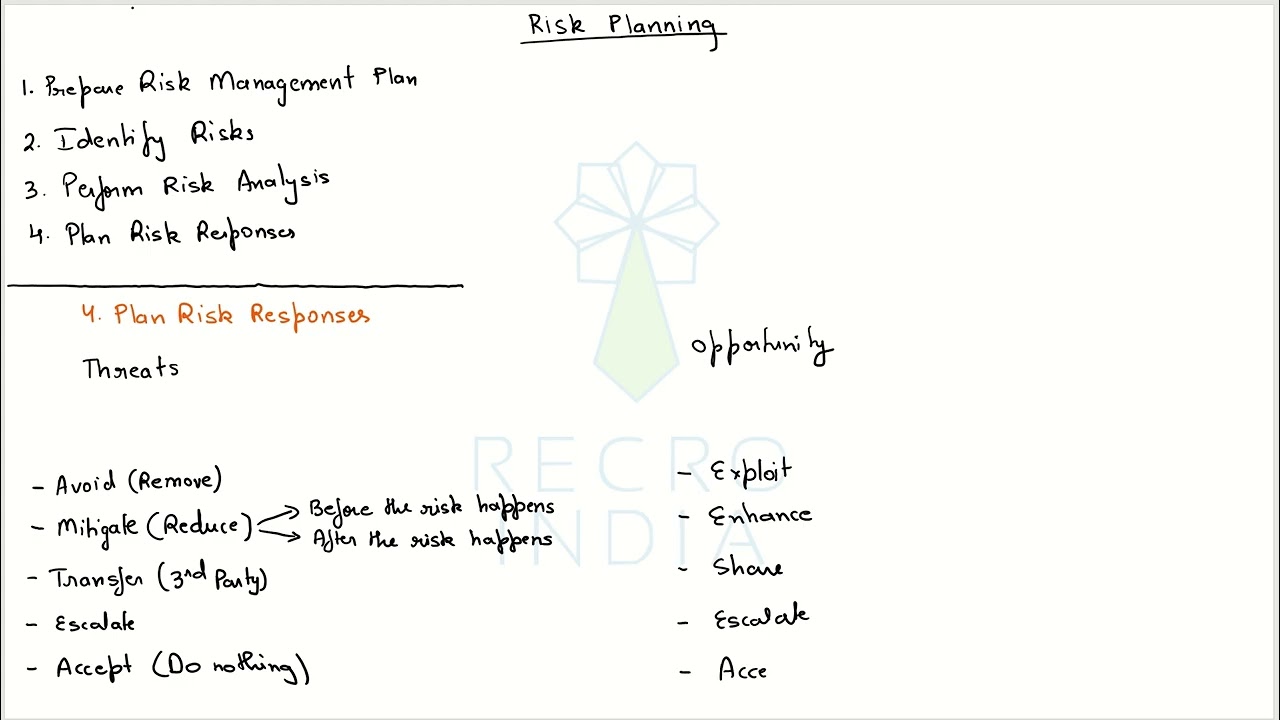 Risk Planning
1. Prepare Risk Management Plan
2. Identify Risks
3. Perform Risk Analysis
4. Plan Risk Responses
4. Plan Risk Responses
Threats
- Avoid (Remove)
- Mitigate (Reduce) → Before the risk happens
→ After the risk happens
- Transfer (3rd Party)
- Escalate
- Accept (Do nothing)
opportunity
- Exploit
- Enhance
- Share
- Escalate
- Acce
RECRO
INDIA